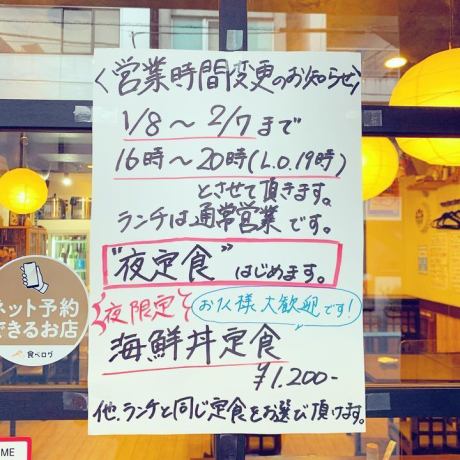 〈営業時間変更のお知らせ〉
1/8〜2/7まで
16時〜20時(L.O.19時)
とさせて頂きます。
ランチは通常営業です。
"夜定食"はじめます。
夜限定
お1人様大歓迎です!
海鮮丼定食
¥1.200-
他.ランチと同じ定食をお選び頂けます。
ネット予約
できるお店
食べログ
ME